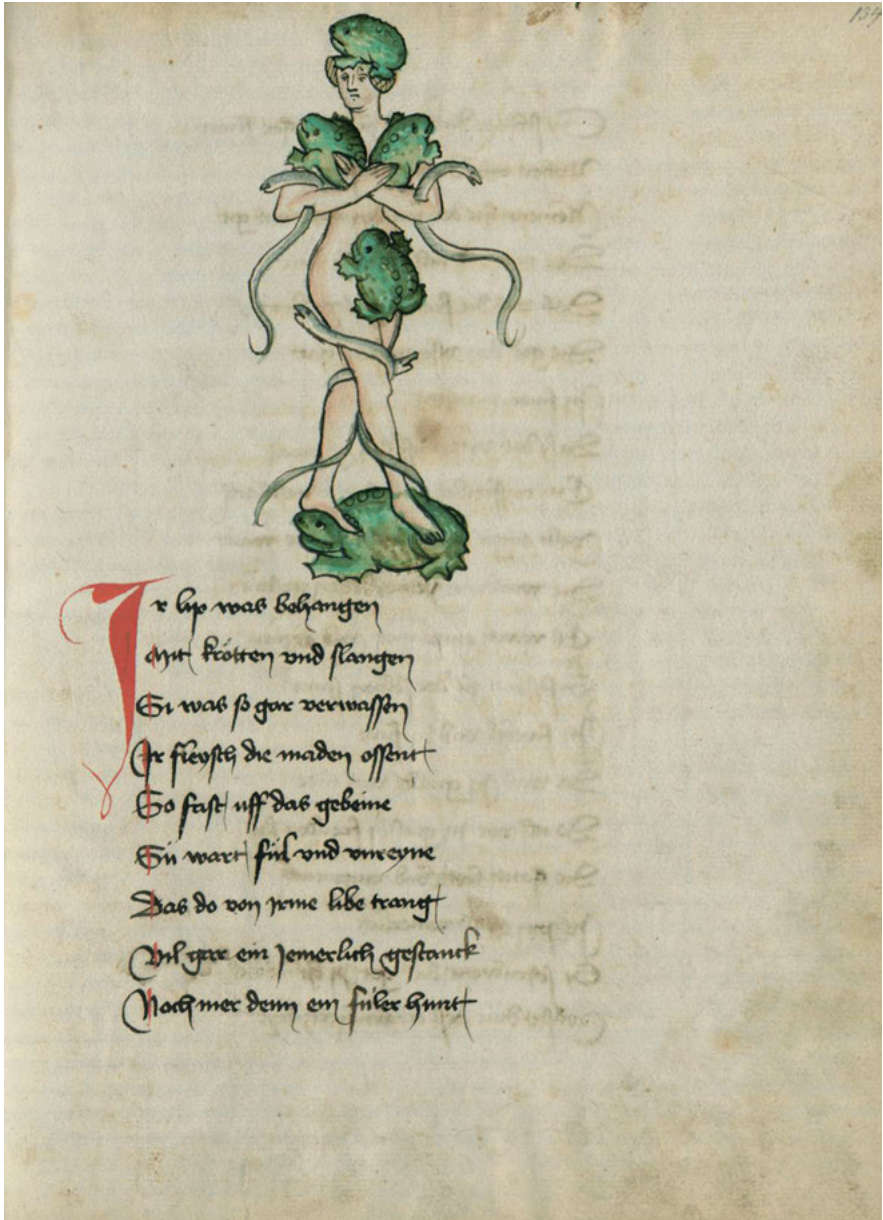 134
Ir lip was behangen
Mit krötten vnd slangen
Si was so gar verwassen
Ir fleysch die maden ossent
So fast uff das gebeine
Sü wart fül vnd vnreyne
Das do von irme libe trang
Vil gar ein Jemerlich gestanck
Noch mer denn ein füler hunt